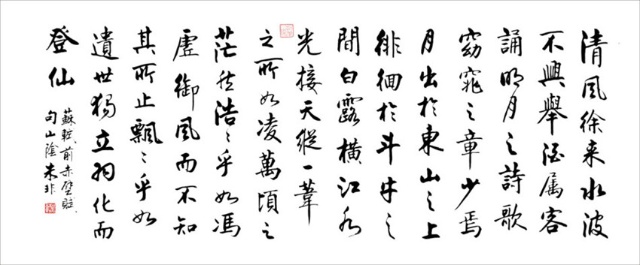 清風徐来水波
不興舉酒属客
誦明月之詩歌
窈窕之章少焉
月出於東山之上
徘徊於斗牛之
間白露橫江水
光接天縱一葦
之所如凌萬頃之
茫然浩〻乎如馮
虛御風而不知
其所止飄〻乎如
遺世獨立羽化而
登仙
蘇軾前赤壁賦
句山陰